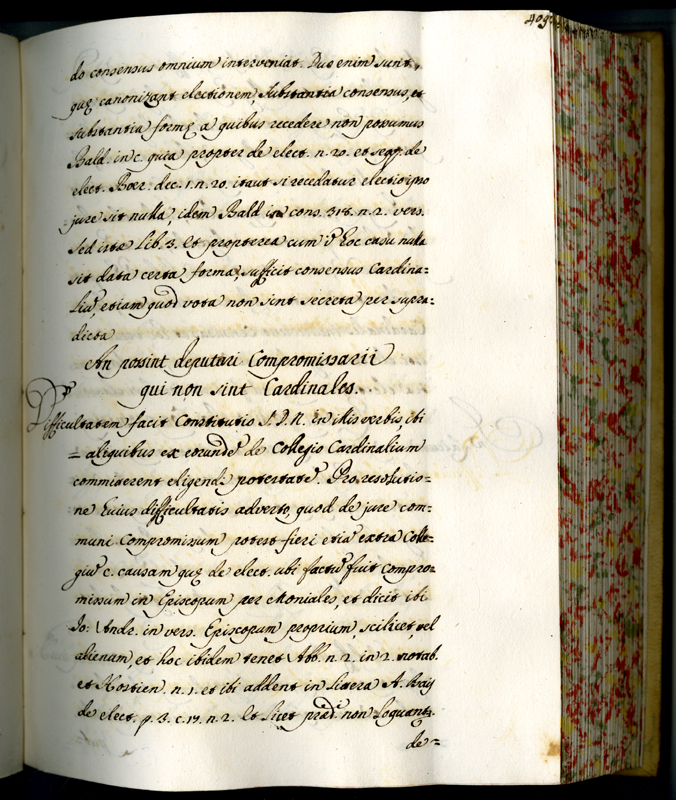 409
do consensus omnium interveniat. Duo enim sunt,
quę canonizant electionem, substantia consensus, et
substantia formę a quibus recedere non possumus
Bald. in c. quia propter de elect. n. 20. et seqq. de
elect. Boer. dec. 1. n. 20. itaut si recedatur electio ipso
jure sit nulla, idem Bald in cons. 318. n. 2. vers.
sed ista Lib. 3. Et propterea cum in hoc casu nulla
sit data certa forma, sufficit consensus Cardina=
liũ, etiam quod vota non sint secreta per supra=
dicta
An possint deputari Compromissarii
qui non sint Cardinales.
Difficultatem facit Constitutio S. D. N. in illis verbis, ibi
= aliquibus ex eorundẽ de Collegio Cardinalium
committerent eligendi potestatẽ. Pro resolutio=
ne huius difficultatis adverto, quod de jure com=
muni Compromissum potest fieri etiã extra Colle=
giũ c. causam quę de elect. ubi factũ fuit compro=
missum in Episcopum per Moniales, et dicit ibi
Jo: Andr. in vers. Episcopum proprium, scilicet, vel
alienum, et hoc ibidem tenet Abb. n. 2. in 2. notab.
et Hostien. n. 1. et ibi addent in litera A.
de elect. p. 3. c. 19. n. 2. Et licet prãdi non loquant.
de=